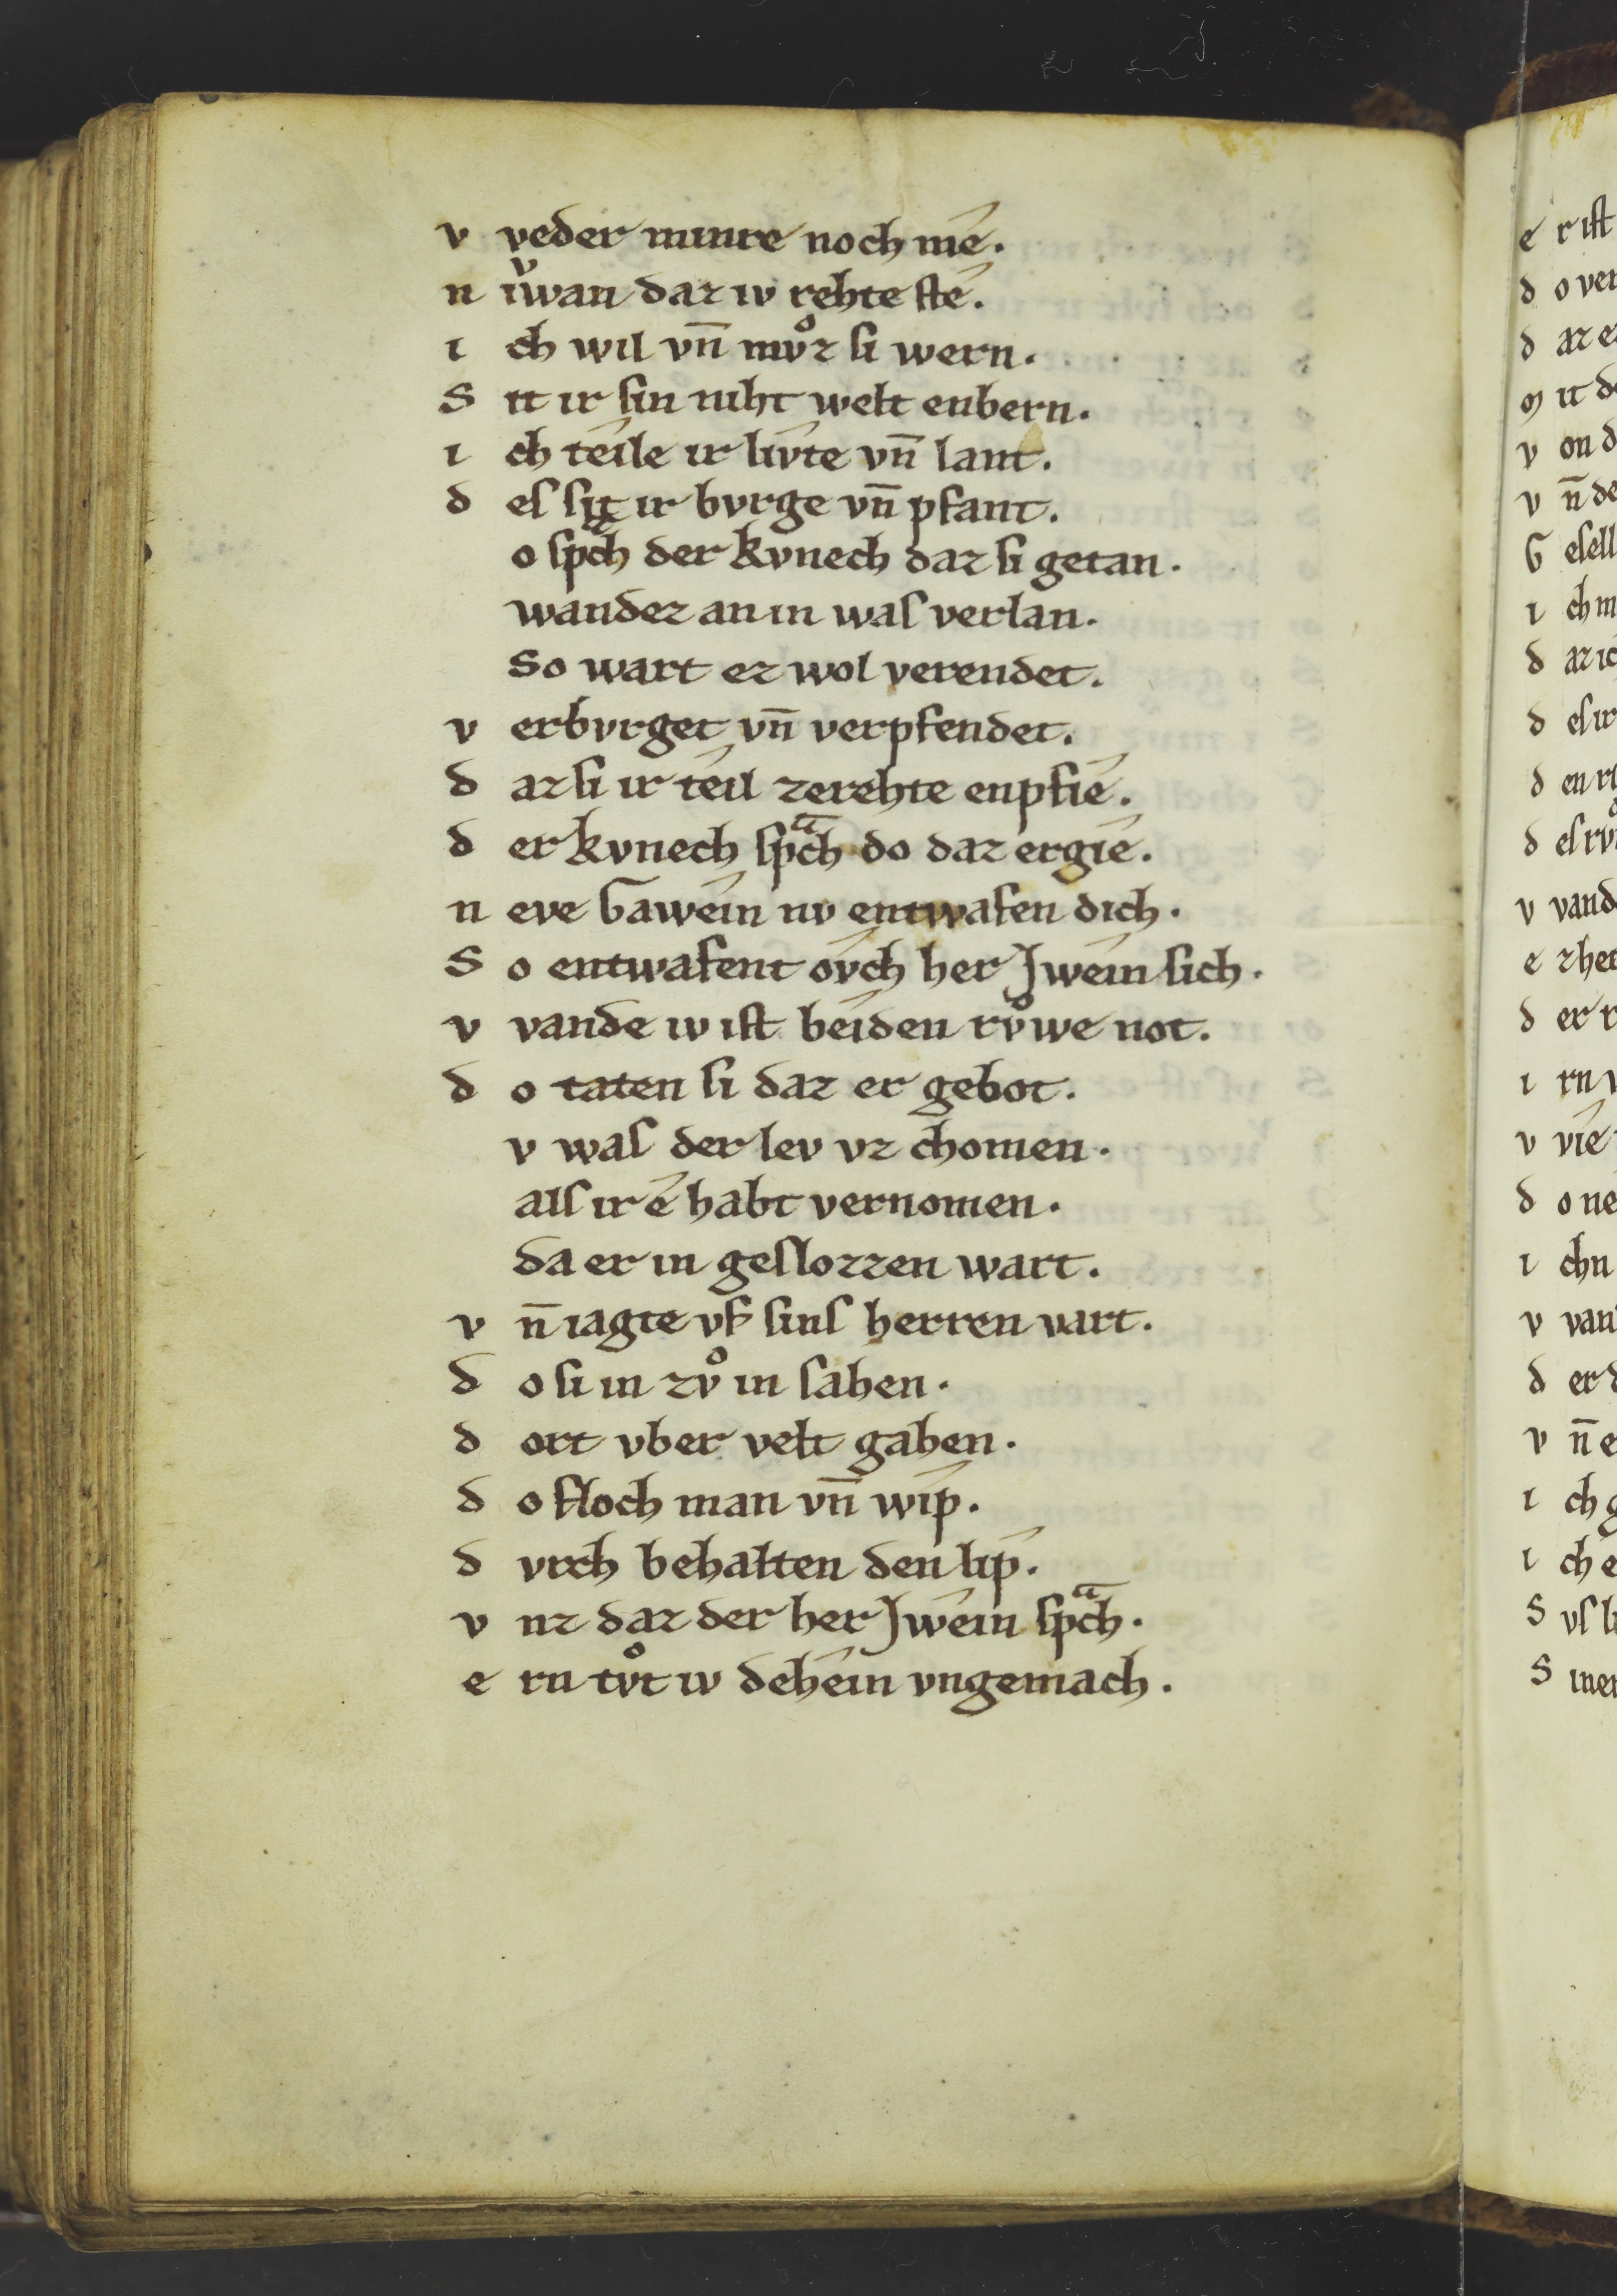 v veder minre noch mé.
n iͮwan daz iv rehte sté.
i ch wil vn̄ mvͦz si wern.
S it ir sin niht welt enbern.
i ch téile ir livte vn̄ lant.
d es sit ir bvrge vn̄ pfant.
o spͣch der kvnech daz si getan.
wandez an in was verlan.
So wart ez wol verendet.
v erbvrget vn̄ verpfendet.
d az si ir téil zerehte enpfié.
d er kvnech spͣch do daz ergié.
n eve Gawéin nv entwafen dich.
S o entwafent óvch her Jwéin sich.
v vande iv ist béiden rvͦwe not.
d o taten si daz er gebot.
v was der lev vz chomen.
als ir é habt vernomen.
da er in geslozzen wart.
v n̄ iagte vf sins herren vart.
d o si in zvͦ in sahen.
d ort vber velt gahen.
d o floch man vn̄ wíp.
d vrch behalten den líp.
v nz daz der her Jwéin spͣch.
e rn tvͦt iv dehéin vngemach.
e r ist
d o ver
d az e
m it d
v on d
v n̄ de
G esell
i ch m
d az ic
d es ir
d en ri
d es rvͦ
v vand
e z her
d er r
i rn v
v vié
d o ne
i chn
v van
d er d
v n̄ e
i ch g
i ch e
S vs li
S iner